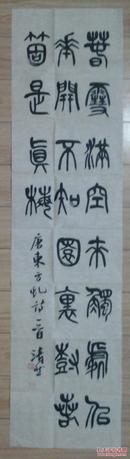 春雪滿空來觸處似
華開不知園裏樹若
箇是眞梅
唐東方虬詩一首